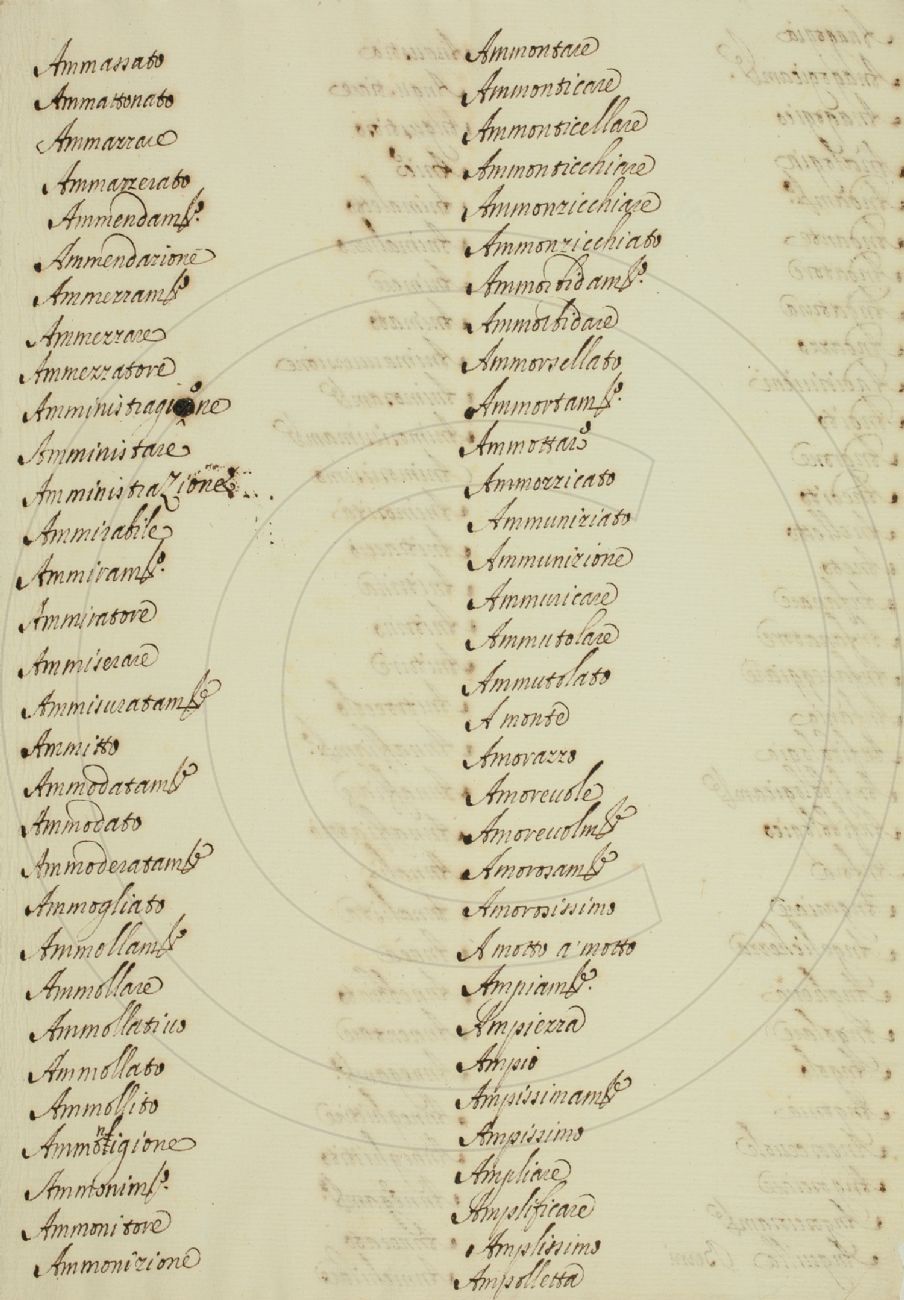 Ammassato
Ammattonato
Ammazzare
Ammazzerato
Ammendamto.
Ammendazione
Ammezzamto
Ammezzare
Ammezzatore
Amministragione
Amministare
Amministrazione
Ammirabile
Ammiramto.
Ammiratore
Ammiserare
Ammisuratamte
Ammitto
Ammodatamte
Ammodato
Ammoderatamte
Ammogliato
Ammollamto
Ammollare
Ammollativo
Ammollato
Ammollito
Ammontigione
Ammonimto.
Ammonitore
Ammonizione
Ammontare
Ammonticare
Ammonticellare
Ammonticchiare
Ammonzicchiare
Ammonzicchiato
Ammorbidamto.
Ammorbidare
Ammorsellato
Ammortamto.
Ammottare
Ammozzicato
Ammuniziato
Ammunizione
Ammuricare
Ammutolare
Ammutolato
A monte
Amorazzo
Amorevole
Amorevolmte
Amorosamte
Amorosissimo
A motto a' motto
Ampiamte.
Ampiezza
Ampio
Ampissimamte
Ampissimo
Ampliare
Amplificare
Amplissimo
Ampolletta